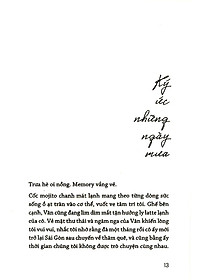 Ký
ức
những
ngày
mưa
Trưa hè oi nồng. Memory vắng vẻ.
Cốc mojito chanh mát lạnh mang theo từng dòng sức
sống ồ ạt tràn vào cơ thể, vuốt ve tâm trí tôi. Ghế bên
cạnh, Vân cũng đang lim dim mắt tận hưởng ly latte lạnh
của cô. Vẻ mặt thư thái và ngâm nga của Vân khiến lòng
tôi vui vui, nhắc tôi nhớ rằng đã một tháng rồi cô ấy mới
trở lại Sài Gòn sau chuyến về thăm quê, và cũng bằng ấy
thời gian chúng tôi không được trò chuyện cùng nhau.
13